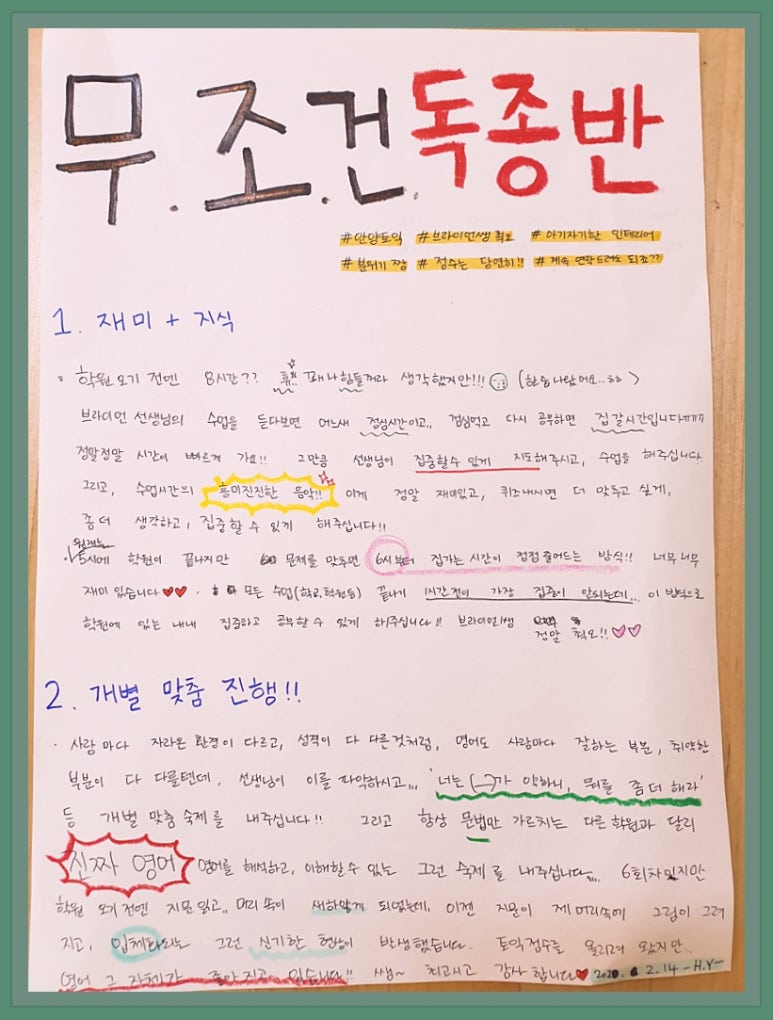 무.조.건.독종반
#안양토익 #브라이언쌤 최고 #아기자기한 인테리어
#분위기 짱 #점수는 당연히!! #계속 연락드려도 되죠??
1. 재미 + 지식
• 학원 오기 전엔 8시간?? 휴.. 꽤나 힘들꺼라 생각했지만!!! (한숨나왔어요..ㅎㅎ)
브라이언 선생님의 수업을 듣다보면 어느새 점심시간이고,, 점심먹고 다시 공부하면 집갈시간입니다ㅠㅠㅠ
정말정말 시간이 빠르게 가요!! 그만큼 선생님이 집중할수 있게 지도해주시고, 수업을 해주십니다.
그리고, 수업시간의 흥미진진한 음악!! 이게 정말 재미있고, 퀴즈내시면 더 맞추고 싶게,
좀 더 생각하고, 집중할 수 있게 해주십니다!!
• 원래는 5시에 학원이 끝나지만 문제를 맞추면 6시부터 집가는 시간이 점점 줄어드는 방식!! 너무너무
재미있습니다♥♥ · 모든 수업(학교,학원등) 끝나기 1시간전이 가장 집중이 안되는데... 이 방식으로
학원에 있는 내내 집중하고 공부할 수 있게 해주십니다!! 브라이언쌤 정말 최고!! ♡♡
2. 개별 맞춤 진행!!
· 사람마다 자라온 환경이 다르고, 성격이 다 다른것처럼, 영어도 사람마다 잘하는 부분, 취약한
부분이 다 다를텐데, 선생님이 이를 파악하시고,,, '너는 (__)가 약하니, 뭐를 좀 더 해라'
등 개별 맞춤 숙제를 내주십니다!! 그리고 항상 문법만 가르치는 다른 학원과 달리
진짜 영어 영어를 해석하고, 이해할수 있는 그런 숙제를 내주십니다,,,, 6회차지만
학원 오기 전엔 지문 읽고,, 머리 속이 새하얗게 되었는데, 이젠 지문이 제 머리속에 그림이 그려
지고, 입체화되는 그런 신기한 현상이 발생했습니다. 토익점수를 올리려 왔지만..
영어 그 자체가 좋아지고 있습니다!! 쌤~ 최고시고 감사합니다♥ 2020. 2.14 -H.Y-